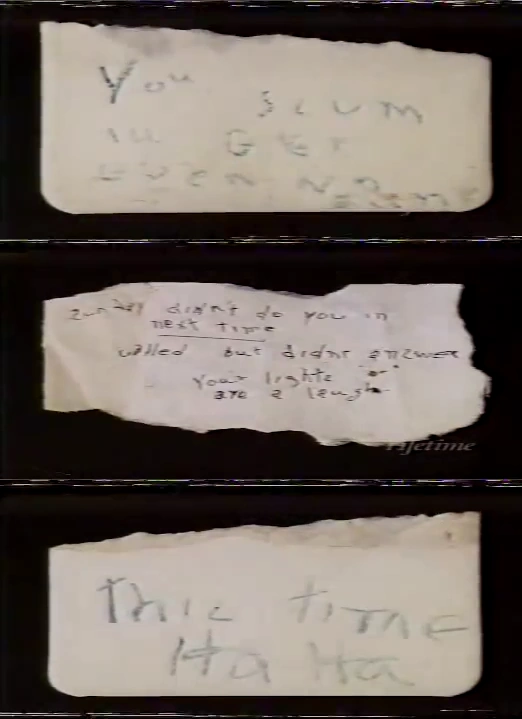 You SCUM
GET
EVEN
didn't do you in
next time
called but didnt answer
Your lights
are a laugh
Lifetime
This time
Ha Ha